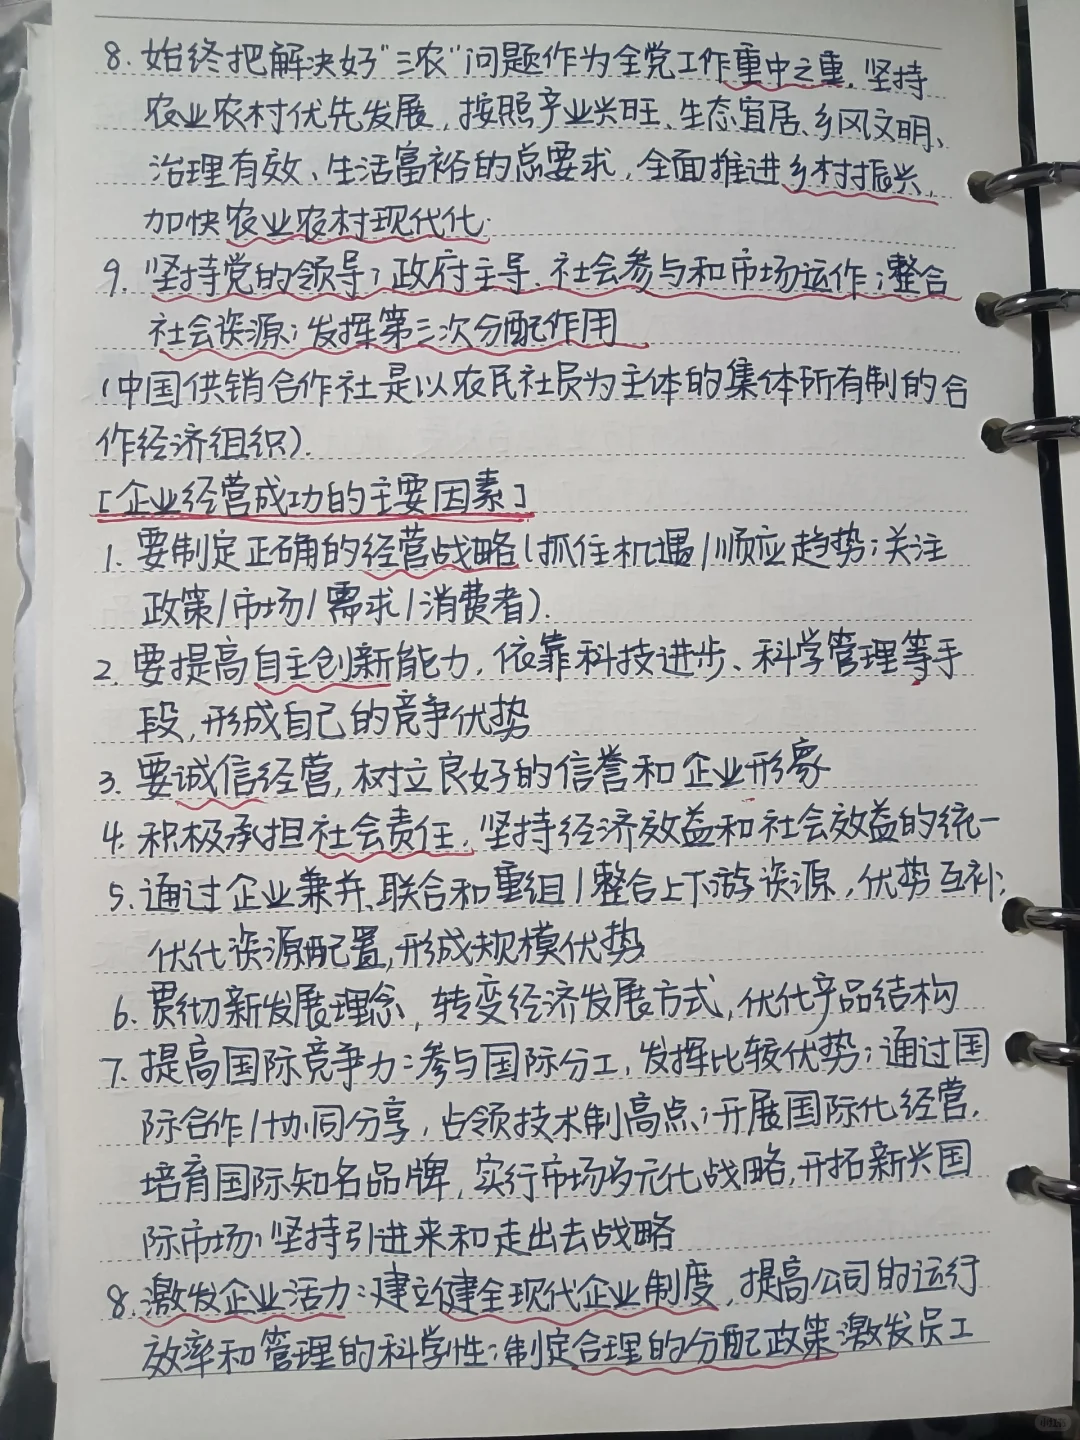 8. 始终把解决好"三农"问题作为全党工作重中之重. 坚持
农业农村优先发展, 按照产业兴旺、生态宜居、乡风文明、
治理有效、生活富裕的总要求, 全面推进乡村振兴,
加快农业农村现代化.
9. 坚持党的领导; 政府主导、社会参与和市场运作; 整合
社会资源; 发挥第三次分配作用
(中国供销合作社是以农民社员为主体的集体所有制的合
作经济组织).
[企业经营成功的主要因素]
1. 要制定正确的经营战略(抓住机遇/顺应趋势; 关注
政策/市场/需求/消费者).
2. 要提高自主创新能力, 依靠科技进步、科学管理等手
段, 形成自己的竞争优势
3. 要诚信经营, 树立良好的信誉和企业形象
4. 积极承担社会责任, 坚持经济效益和社会效益的统一
5. 通过企业兼并、联合和重组/整合上下游资源, 优势互补;
优化资源配置, 形成规模优势
6. 贯彻新发展理念, 转变经济发展方式, 优化产品结构
7. 提高国际竞争力: 参与国际分工, 发挥比较优势; 通过国
际合作/协同分享, 占领技术制高点; 开展国际化经营,
培育国际知名品牌, 实行市场多元化战略, 开拓新兴国
际市场; 坚持引进来和走出去战略
8. 激发企业活力: 建立健全现代企业制度, 提高公司的运行
效率和管理的科学性; 制定合理的分配政策激发员工